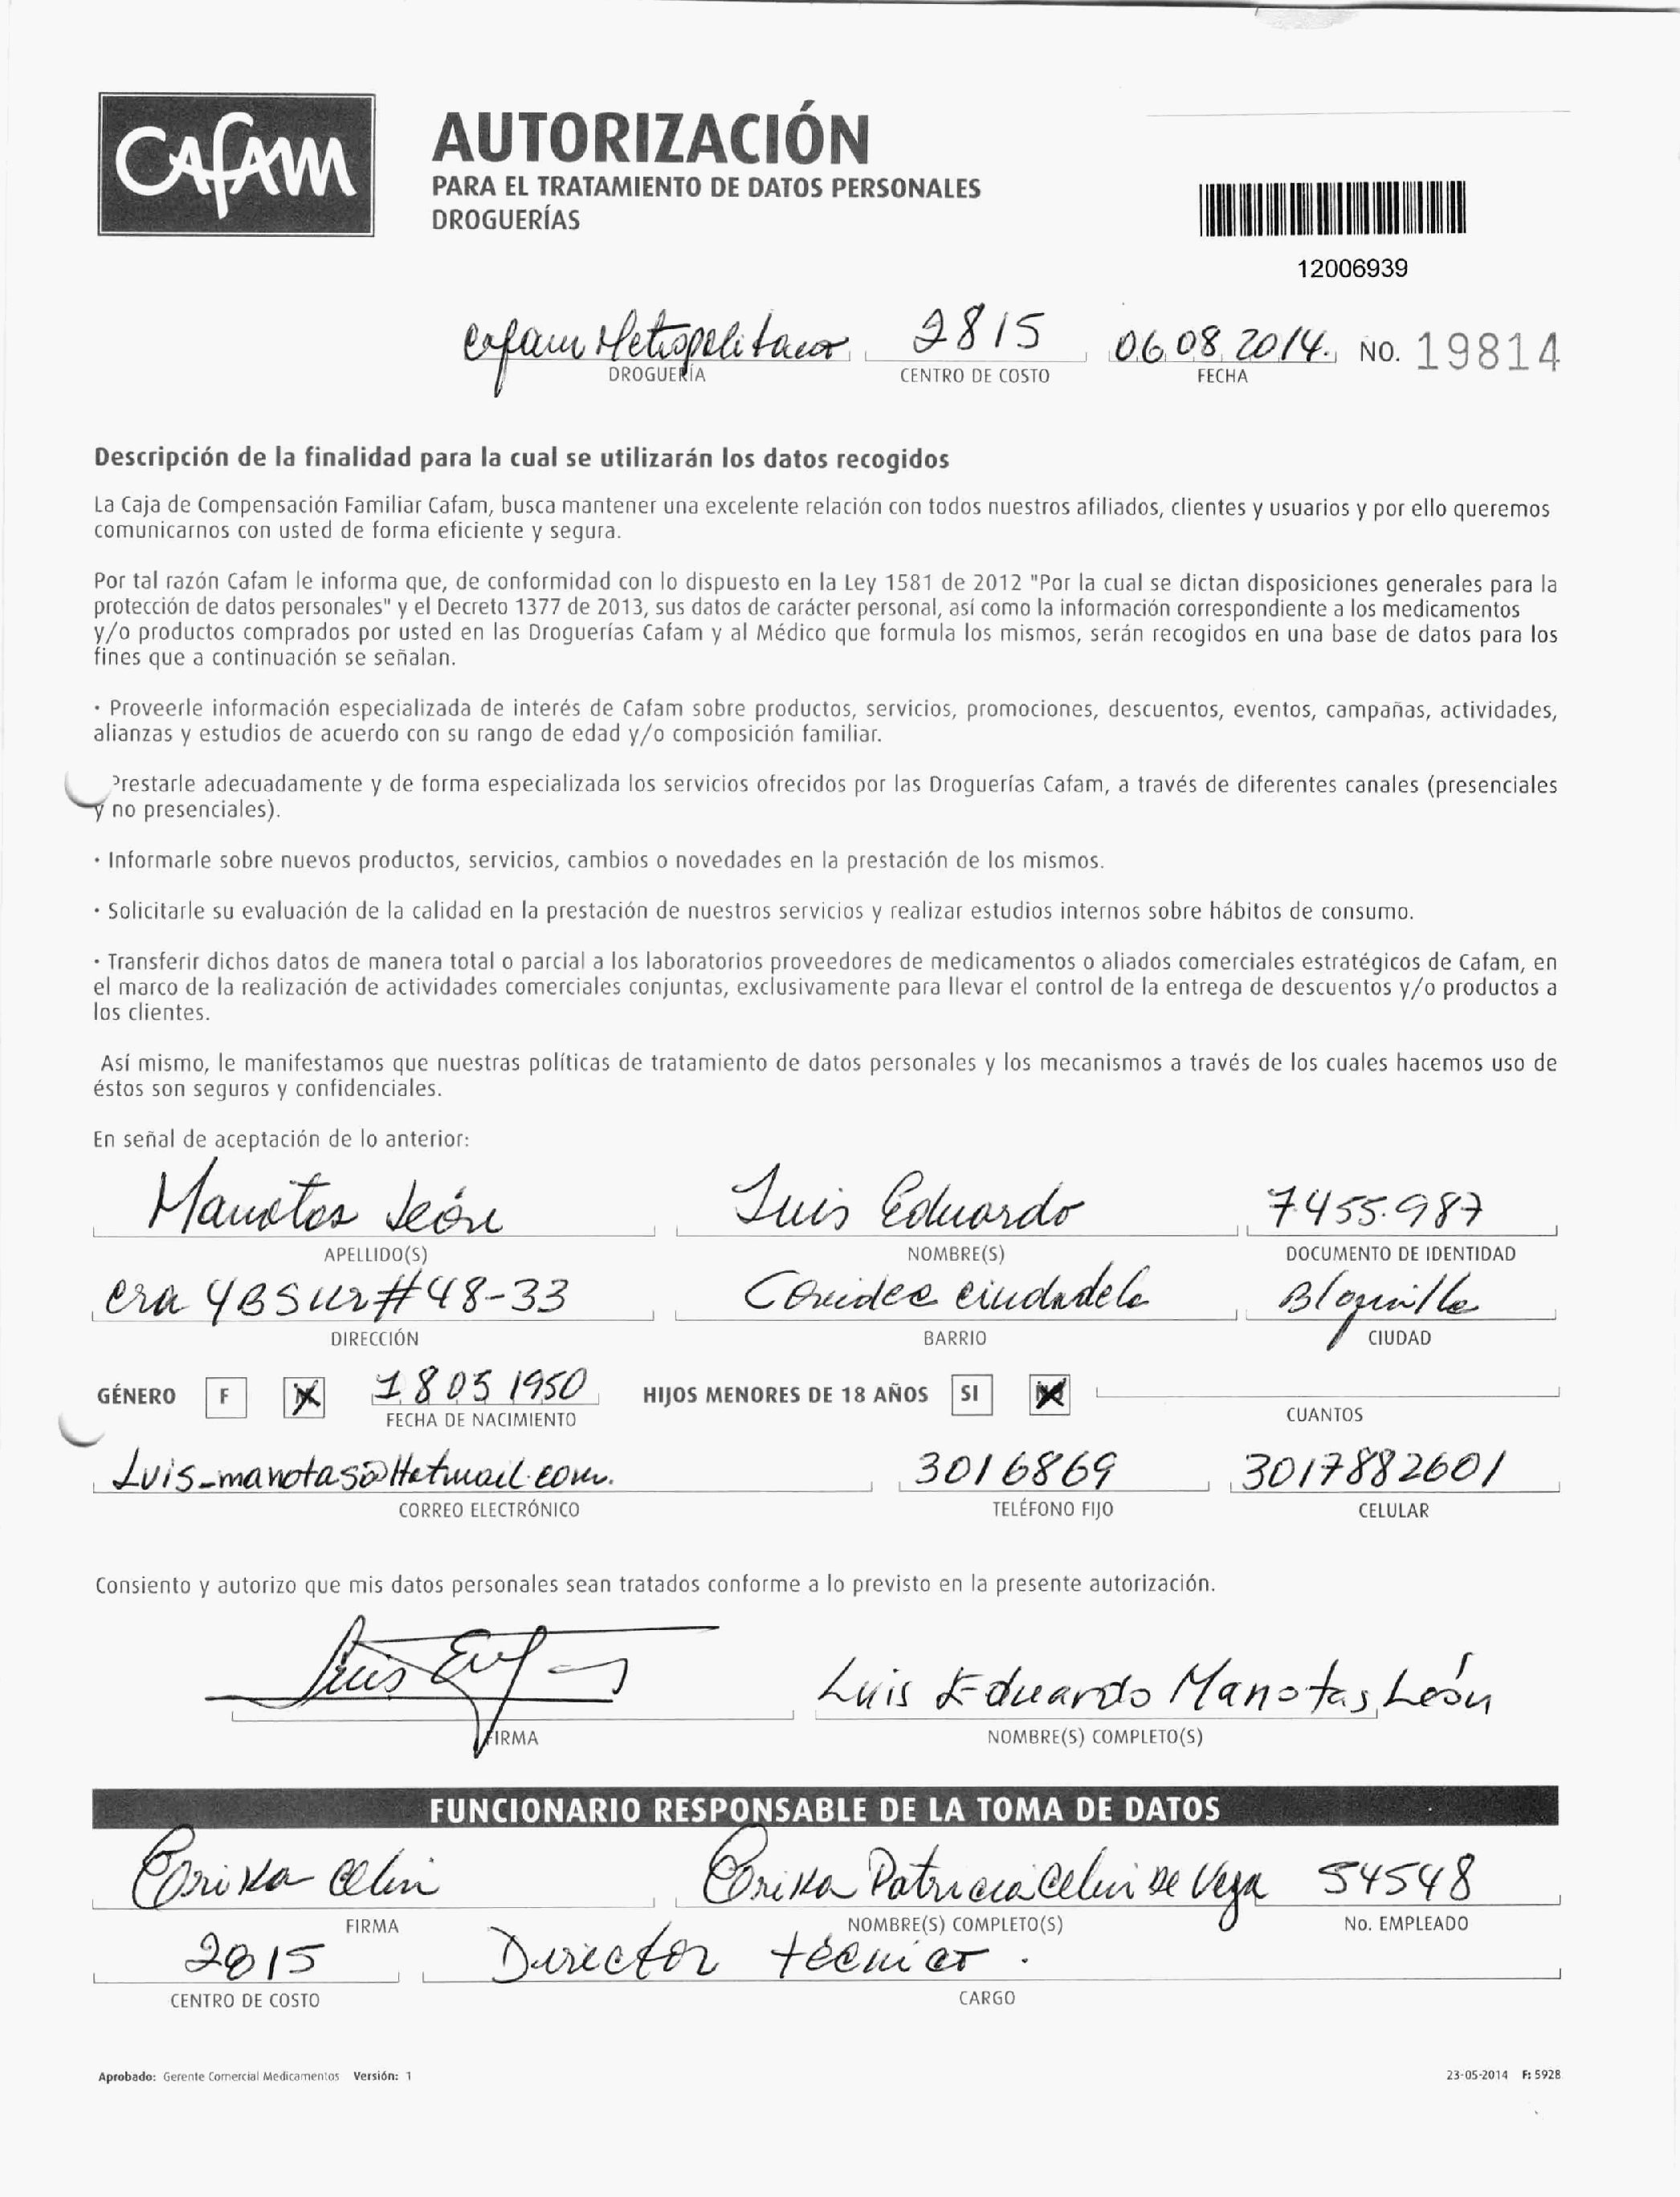 Cafam
AUTORIZACIÓN
PARA EL TRATAMIENTO DE DATOS PERSONALES
DROGUERÍAS
12006939
Cafam Metropolitano 2815 06 08 2014. NO. 19814
DROGUERÍA CENTRO DE COSTO FECHA
Descripción de la finalidad para la cual se utilizarán los datos recogidos
La Caja de Compensación Familiar Cafam, busca mantener una excelente relación con todos nuestros afiliados, clientes y usuarios y por ello queremos
comunicarnos con usted de forma eficiente y segura.
Por tal razón Cafam le informa que, de conformidad con lo dispuesto en la Ley 1581 de 2012 "Por la cual se dictan disposiciones generales para la
protección de datos personales" y el Decreto 1377 de 2013, sus datos de carácter personal, así como la información correspondiente a los medicamentos
y/o productos comprados por usted en las Droguerías Cafam y al Médico que formula los mismos, serán recogidos en una base de datos para los
fines que a continuación se señalan.
· Proveerle información especializada de interés de Cafam sobre productos, servicios, promociones, descuentos, eventos, campañas, actividades,
alianzas y estudios de acuerdo con su rango de edad y/o composición familiar.
Prestarle adecuadamente y de forma especializada los servicios ofrecidos por las Droguerías Cafam, a través de diferentes canales (presenciales
y no presenciales).
· Informarle sobre nuevos productos, servicios, cambios o novedades en la prestación de los mismos.
· Solicitarle su evaluación de la calidad en la prestación de nuestros servicios y realizar estudios internos sobre hábitos de consumo.
· Transferir dichos datos de manera total o parcial a los laboratorios proveedores de medicamentos o aliados comerciales estratégicos de Cafam, en
el marco de la realización de actividades comerciales conjuntas, exclusivamente para llevar el control de la entrega de descuentos y/o productos a
los clientes.
Así mismo, le manifestamos que nuestras políticas de tratamiento de datos personales y los mecanismos a través de los cuales hacemos uso de
éstos son seguros y confidenciales.
En señal de aceptación de lo anterior:
Manotas León Luis Eduardo 7455.987
APELLIDO(S) NOMBRE(S) DOCUMENTO DE IDENTIDAD
cra 4B Sur # 48-33 ciudadela B/quilla
DIRECCIÓN BARRIO CIUDAD
GÉNERO F M 18 05 1950 HIJOS MENORES DE 18 AÑOS SI NO
FECHA DE NACIMIENTO CUANTOS
Luis_manotas@Hotmail.com. 3016869 3017882601
CORREO ELECTRÓNICO TELÉFONO FIJO CELULAR
Consiento y autorizo que mis datos personales sean tratados conforme a lo previsto en la presente autorización.
Luis Eduardo Manotas León
FIRMA NOMBRE(S) COMPLETO(S)
FUNCIONARIO RESPONSABLE DE LA TOMA DE DATOS
Erika Celin Erika Patricia Celin De Vega 54548
FIRMA NOMBRE(S) COMPLETO(S) No. EMPLEADO
2815 Director técnico.
CENTRO DE COSTO CARGO
Aprobado: Gerente Comercial Medicamentos Versión: 1 23-05-2014 F: 5928